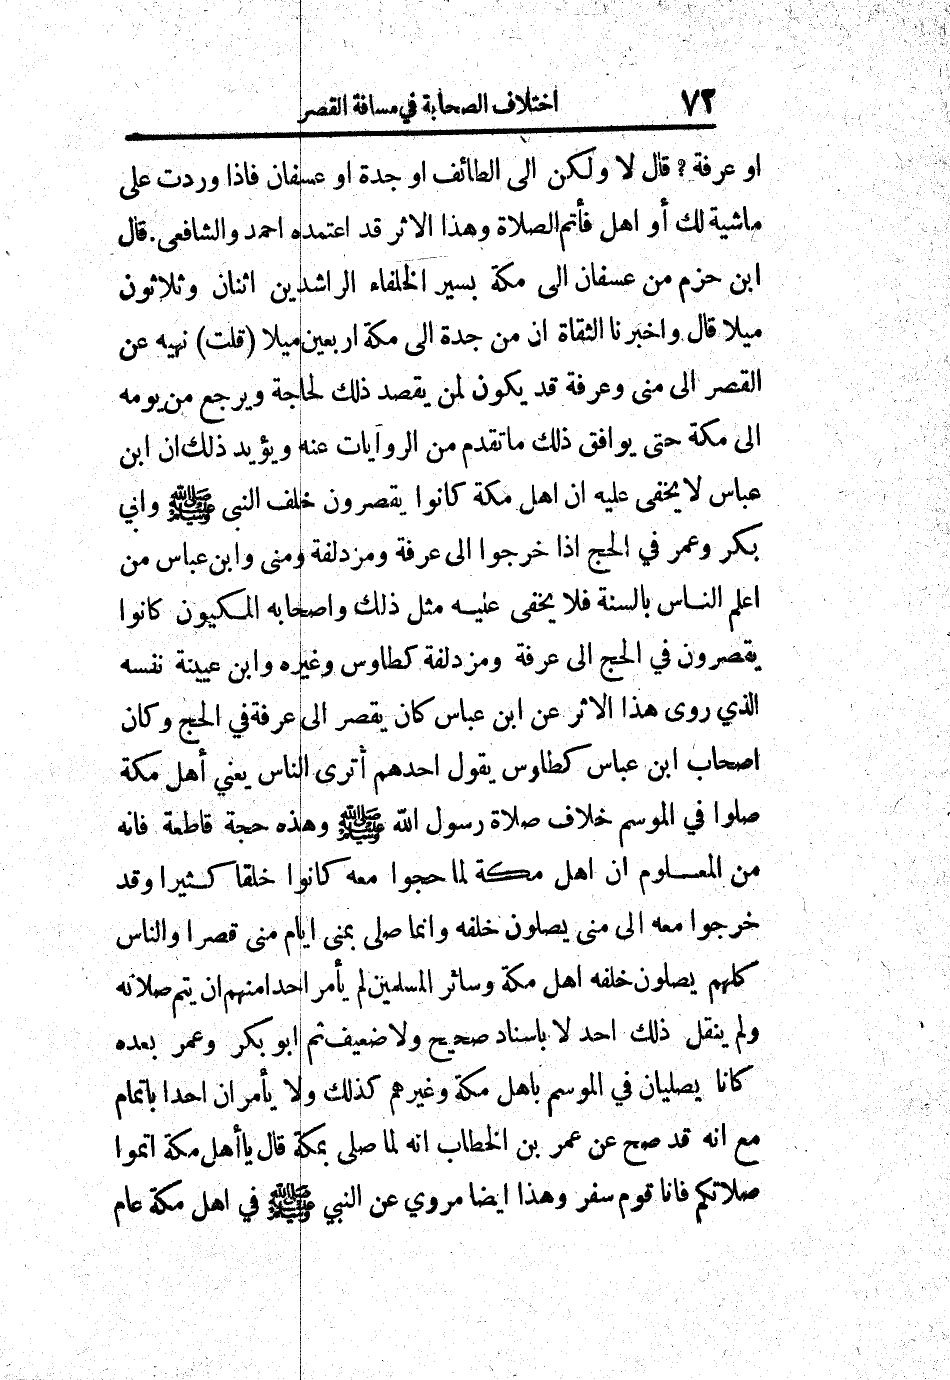 ٧٢ اختلاف الصحابة في مسافة القصر
او عرفة ? قال لا ولكن الى الطائف او جدة او عسفان فاذا وردت على
ماشية لك أو اهل فأتم الصلاة وهذا الاثر قد اعتمده احمد والشافعى . قال
ابن حزم من عسفان الى مكة بسير الخلفاء الراشدين اثنان وثلاثون
ميلا قال واخبرنا الثقاة ان من جدة الى مكة اربعين ميلا (قلت) نهيه عن
القصر الى منى وعرفة قد يكون لمن يقصد ذلك لحاجة ويرجع من يومه
الى مكة حتى يوافق ذلك ما تقدم من الروايات عنه ويؤيد ذلك ان ابن
عباس لا يخفى عليه ان اهل مكة كانوا يقصرون خلف النبى ﷺ وابي
بكر وعمر في الحج اذا خرجوا الى عرفة ومزدلفة ومنى وابن عباس من
اعلم الناس بالسنة فلا يخفى عليه مثل ذلك واصحابه المكيون كانوا
يقصرون في الحج الى عرفة ومزدلفة كطاوس وغيره وابن عيينة نفسه
الذي روى هذا الاثر عن ابن عباس كان يقصر الى عرفة في الحج وكان
اصحاب ابن عباس كطاوس يقول احدهم أترى الناس يعني أهل مكة
صلوا في الموسم خلاف صلاة رسول الله ﷺ وهذه حجة قاطعة فانه
من المعلوم ان اهل مكة لما حجوا معه كانوا خلقا كثيرا وقد
خرجوا معه الى منى يصلون خلفه وانما صلى بمنى ايام منى قصرا والناس
كلهم يصلون خلفه اهل مكة وسائر المسلمين لم يأمر احدا منهم ان يتم صلاته
ولم ينقل ذلك احد لا باسناد صحيح ولا ضعيف ثم ابو بكر وعمر بعده
كانا يصليان في الموسم باهل مكة وغيرهم كذلك ولا يأمران احدا باتمام
مع انه قد صح عن عمر بن الخطاب انه لما صلى بمكة قال يا أهل مكة اتموا
صلاتكم فانا قوم سفر وهذا ايضا مروي عن النبي ﷺ في اهل مكة عام